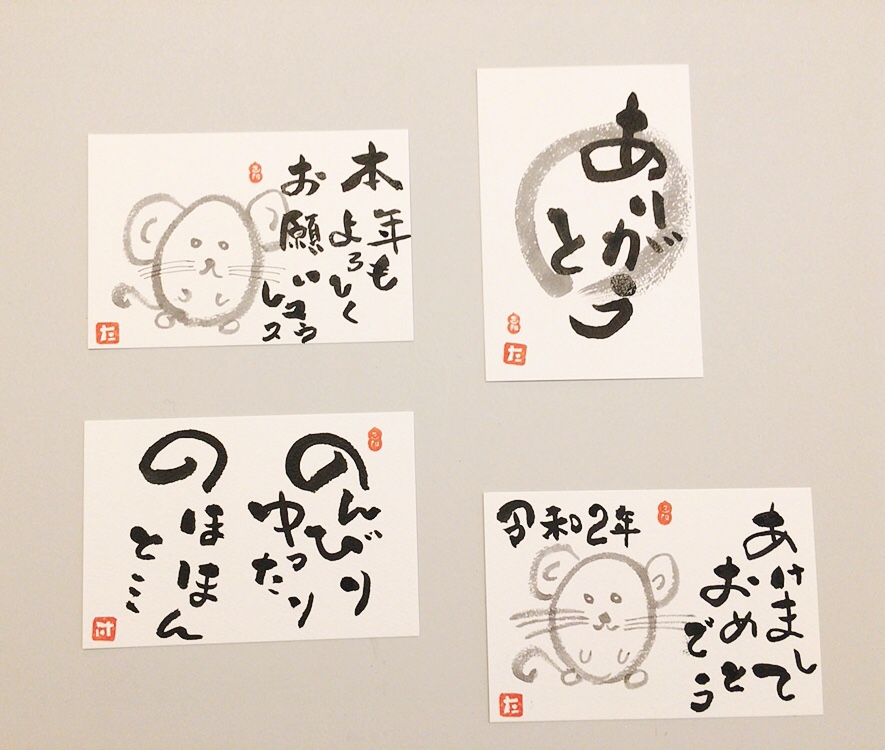 本年も
よろしく
お願い
しマウス
た
ありが
とう
た
のんびり
ゆったり
のほほん
と…
け
あけまして
おめでとう
令和2年
た